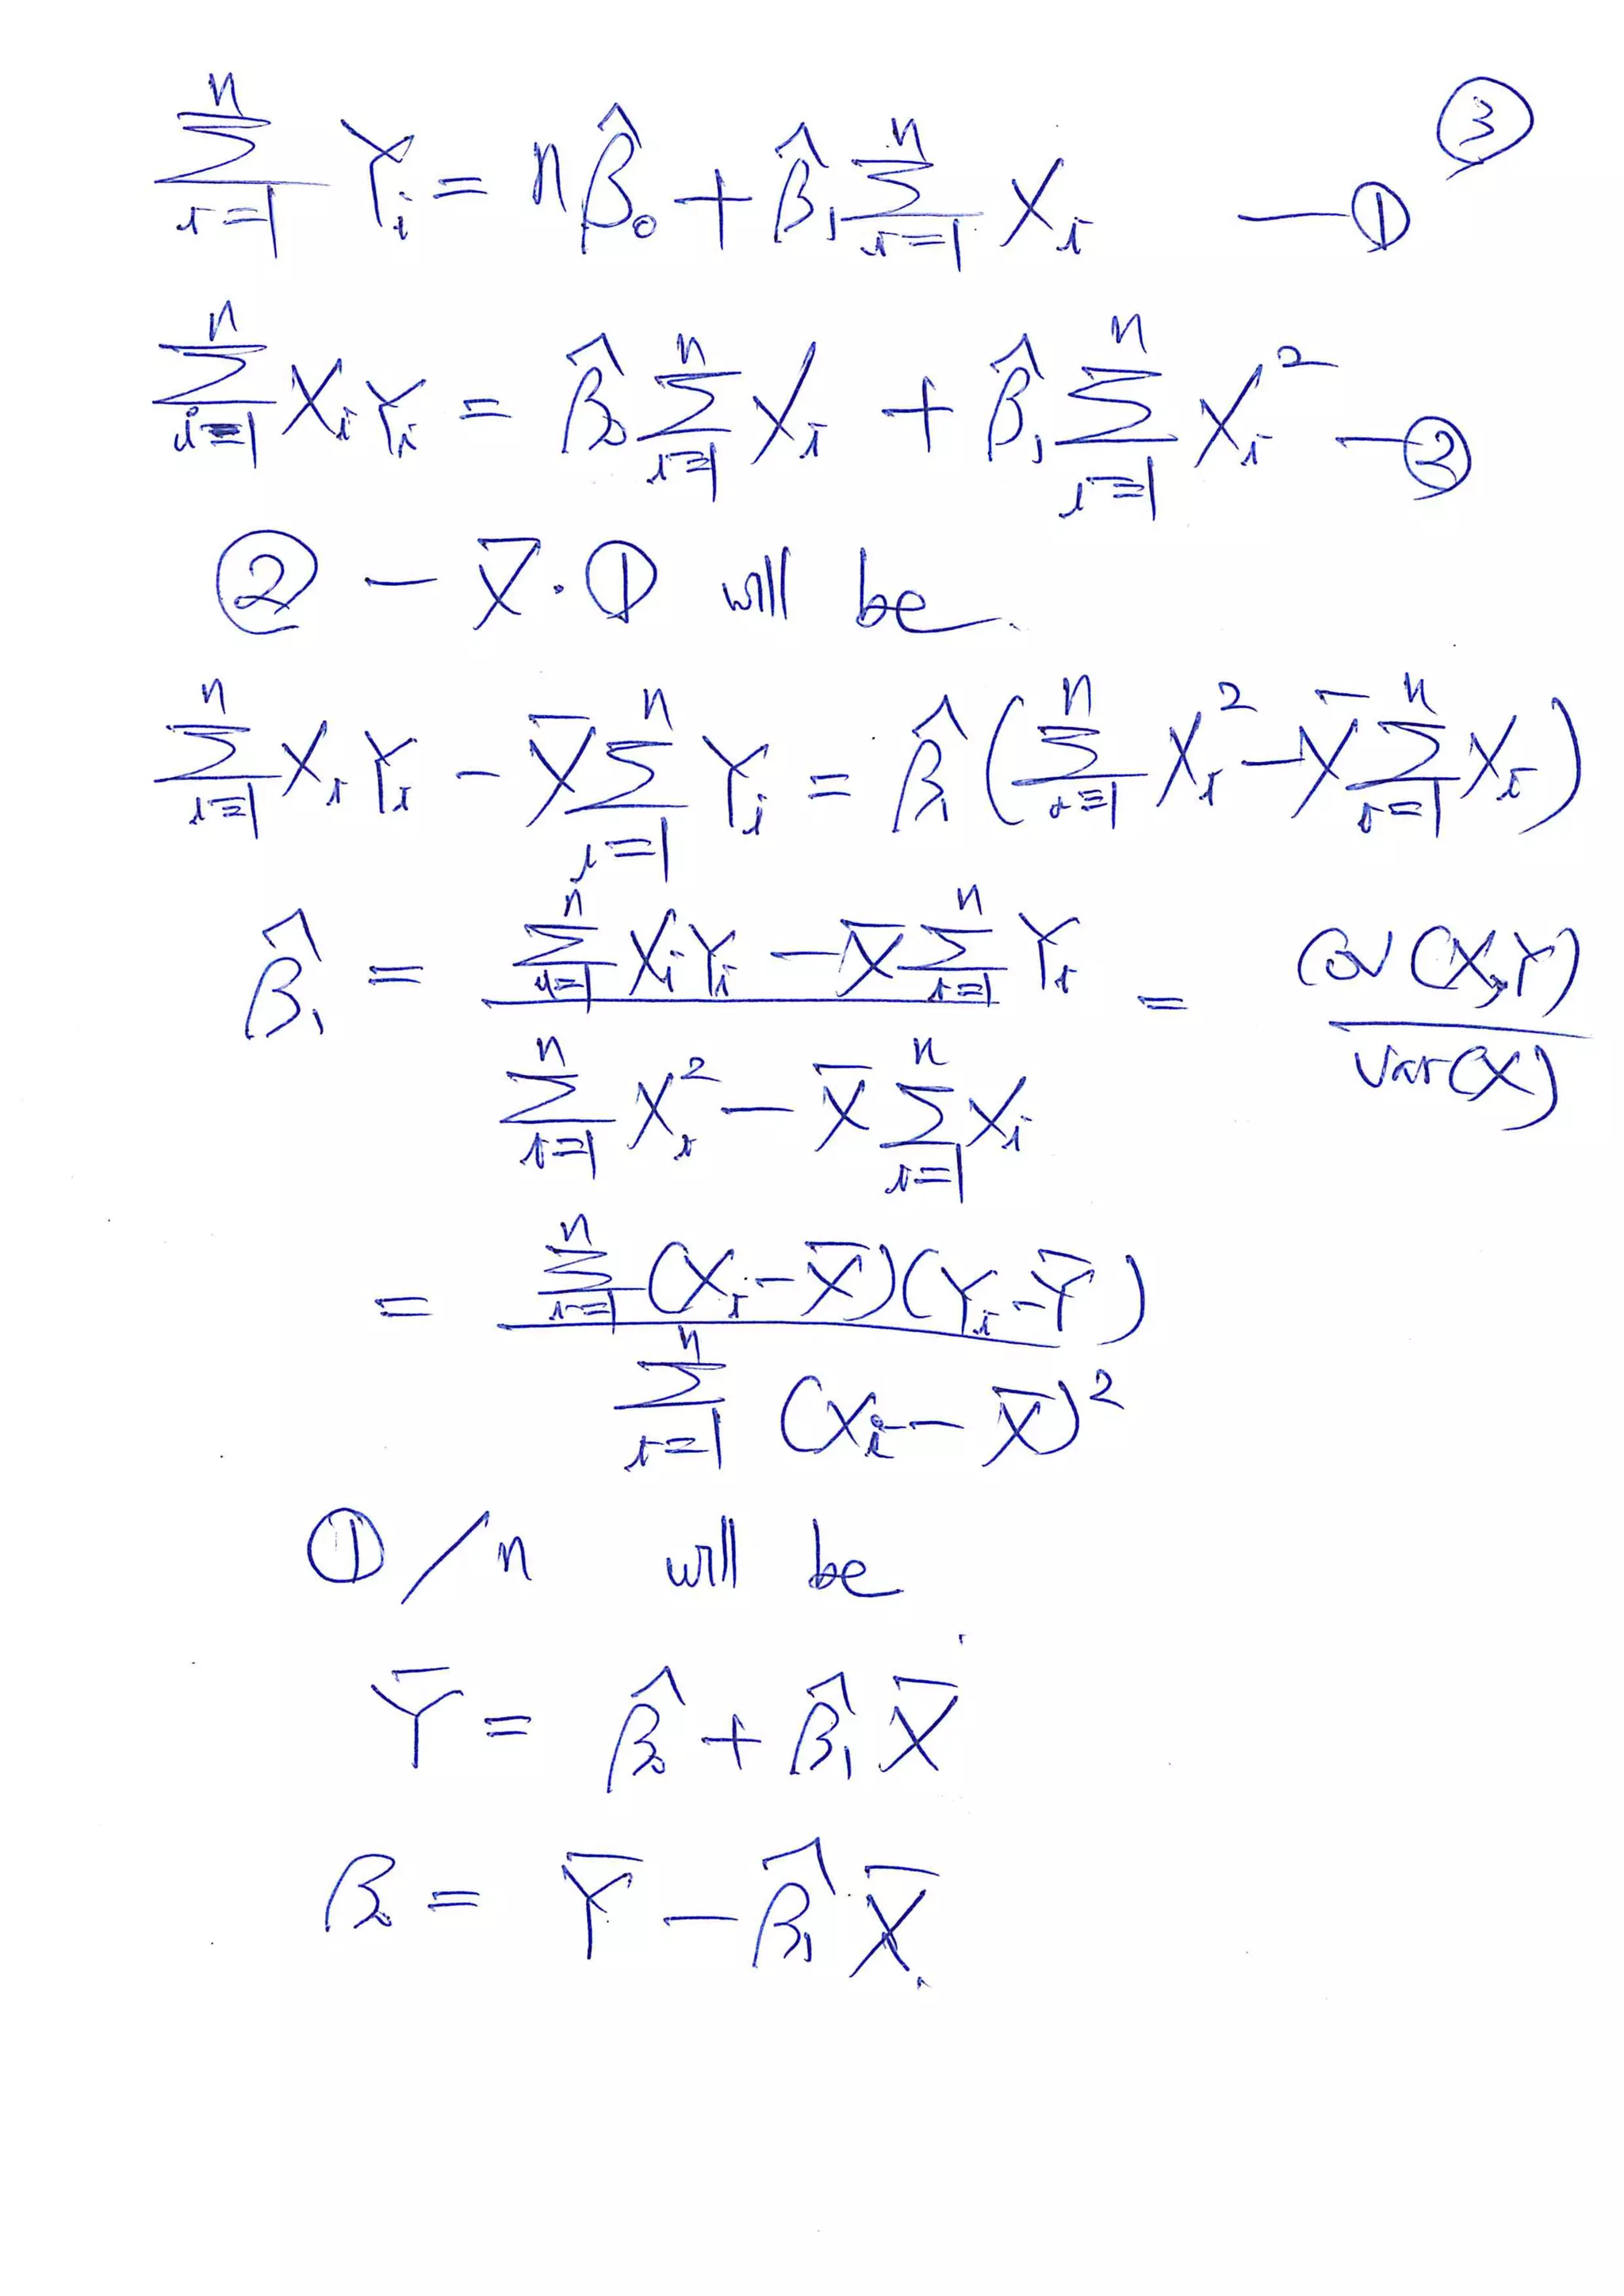 ③
$\sum_{i=1}^{n} Y_i = n\hat{\beta}_0 + \hat{\beta}_1 \sum_{i=1}^{n} X_i$ — ①
$\sum_{i=1}^{n} X_i Y_i = \hat{\beta}_0 \sum_{i=1}^{n} X_i + \hat{\beta}_1 \sum_{i=1}^{n} X_i^2$ — ②
② − $\bar{X}$ · ① will be.
$\sum_{i=1}^{n} X_i Y_i - \bar{X} \sum_{i=1}^{n} Y_i = \hat{\beta}_1 \left( \sum_{i=1}^{n} X_i^2 - \bar{X} \sum_{i=1}^{n} X_i \right)$
$\hat{\beta}_1 = \frac{\sum_{i=1}^{n} X_i Y_i - \bar{X} \sum_{i=1}^{n} Y_i}{\sum_{i=1}^{n} X_i^2 - \bar{X} \sum_{i=1}^{n} X_i} = \frac{Cov(X,Y)}{Var(X)}$
$= \frac{\sum_{i=1}^{n} (X_i - \bar{X})(Y_i - \bar{Y})}{\sum_{i=1}^{n} (X_i - \bar{X})^2}$
① / n will be
$\bar{Y} = \hat{\beta}_0 + \hat{\beta}_1 \bar{X}$
$\beta_0 = \bar{Y} - \hat{\beta}_1 \bar{X}$.